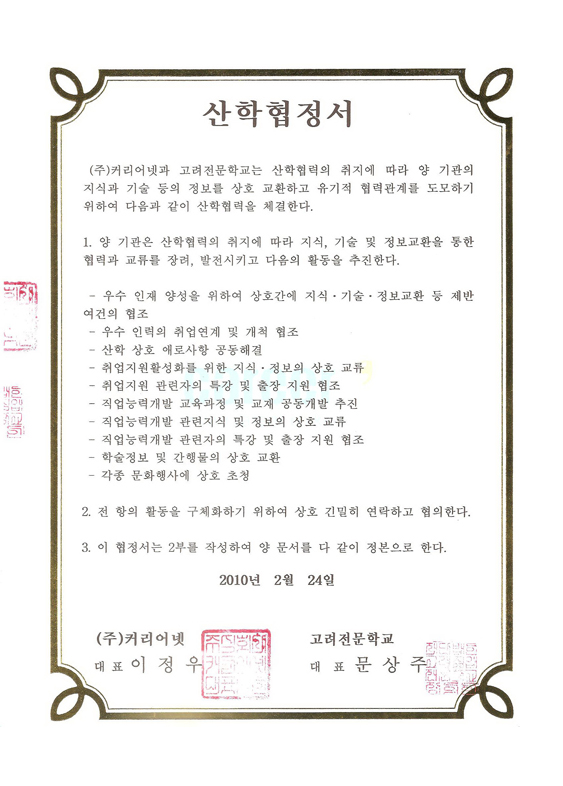 산학협정서
(주)커리어넷과 고려전문학교는 산학협력의 취지에 따라 양 기관의
지식과 기술 등의 정보를 상호 교환하고 유기적 협력관계를 도모하기
위하여 다음과 같이 산학협력을 체결한다.
1. 양 기관은 산학협력의 취지에 따라 지식, 기술 및 정보교환을 통한
협력과 교류를 장려, 발전시키고 다음의 활동을 추진한다.
- 우수 인재 양성을 위하여 상호간에 지식·기술·정보교환 등 제반
여건의 협조
- 우수 인력의 취업연계 및 개척 협조
- 산학 상호 애로사항 공동해결
- 취업지원활성화를 위한 지식·정보의 상호 교류
- 취업지원 관련자의 특강 및 출장 지원 협조
- 직업능력개발 교육과정 및 교재 공동개발 추진
- 직업능력개발 관련지식 및 정보의 상호 교류
- 직업능력개발 관련자의 특강 및 출장 지원 협조
- 학술정보 및 간행물의 상호 교환
- 각종 문화행사에 상호 초청
2. 전 항의 활동을 구체화하기 위하여 상호 긴밀히 연락하고 협의한다.
3. 이 협정서는 2부를 작성하여 양 문서를 다 같이 정본으로 한다.
2010년 2월 24일
(주)커리어넷
대표 이정우
고려전문학교
대 표 문상주